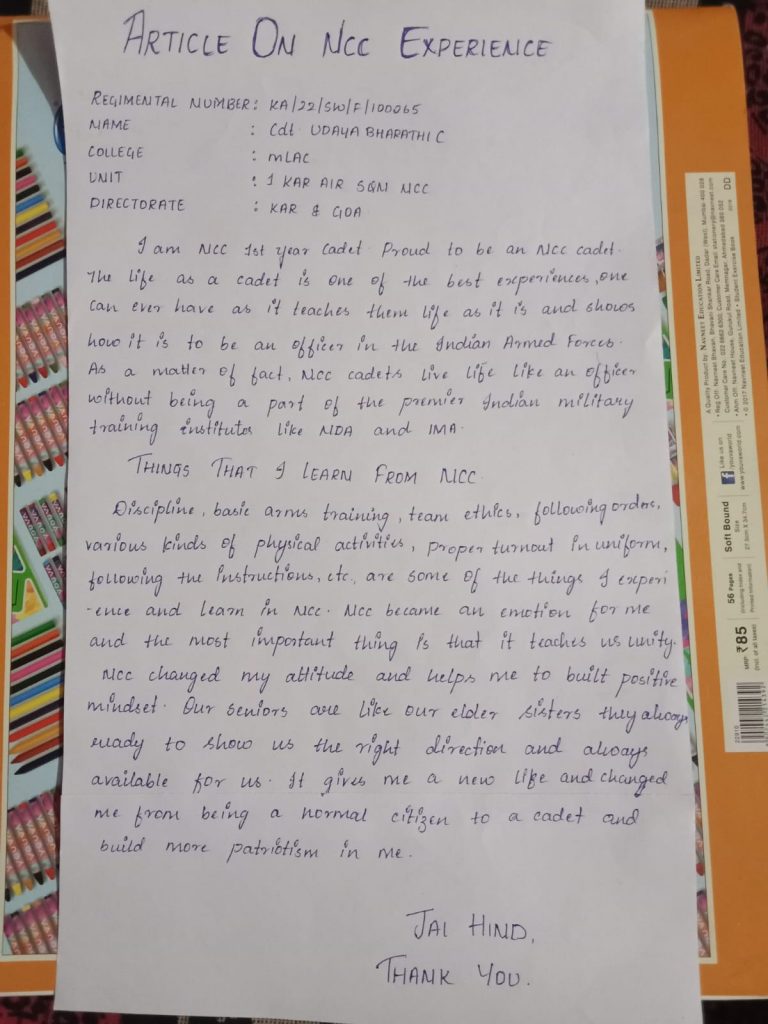 ARTICLE ON NCC EXPERIENCE
REGIMENTAL NUMBER : KA/22/SW/F/100065
NAME : Cdt UDAYA BHARATHI C
COLLEGE : MLAC
UNIT : 1 KAR AIR SQN NCC
DIRECTORATE : KAR & GOA
I am NCC 1st year cadet. Proud to be an NCC cadet.
The life as a cadet is one of the best experiences, one
can ever have as it teaches them life as it is and shows
how it is to be an officer in the Indian Armed Forces.
As a matter of fact, NCC cadets live life like an officer
without being a part of the premier Indian military
training institutes like NDA and IMA.
THINGS THAT I LEARN FROM NCC.
Discipline, basic arms training, team ethics, following orders,
various kinds of physical activities, proper turnout in uniform,
following the instructions, etc., are some of the things I experi
-ence and learn in NCC. NCC became an emotion for me
and the most important thing is that it teaches us unity.
NCC changed my attitude and helps me to built positive
mindset. Our seniors are like our elder sisters they always
ready to show us the right direction and always
available for us. It gives me a new life and changed
me from being a normal citizen to a cadet and
build more patriotism in me.
JAI HIND,
THANK YOU.
A Quality Product by NAVNEET EDUCATION LIMITED
Like us on
youvaworld
www.youvaworld.com
Soft Bound
Size
27.5cm X 34.7cm
56 Pages
MRP ₹85
(Incl. of all taxes)
DD